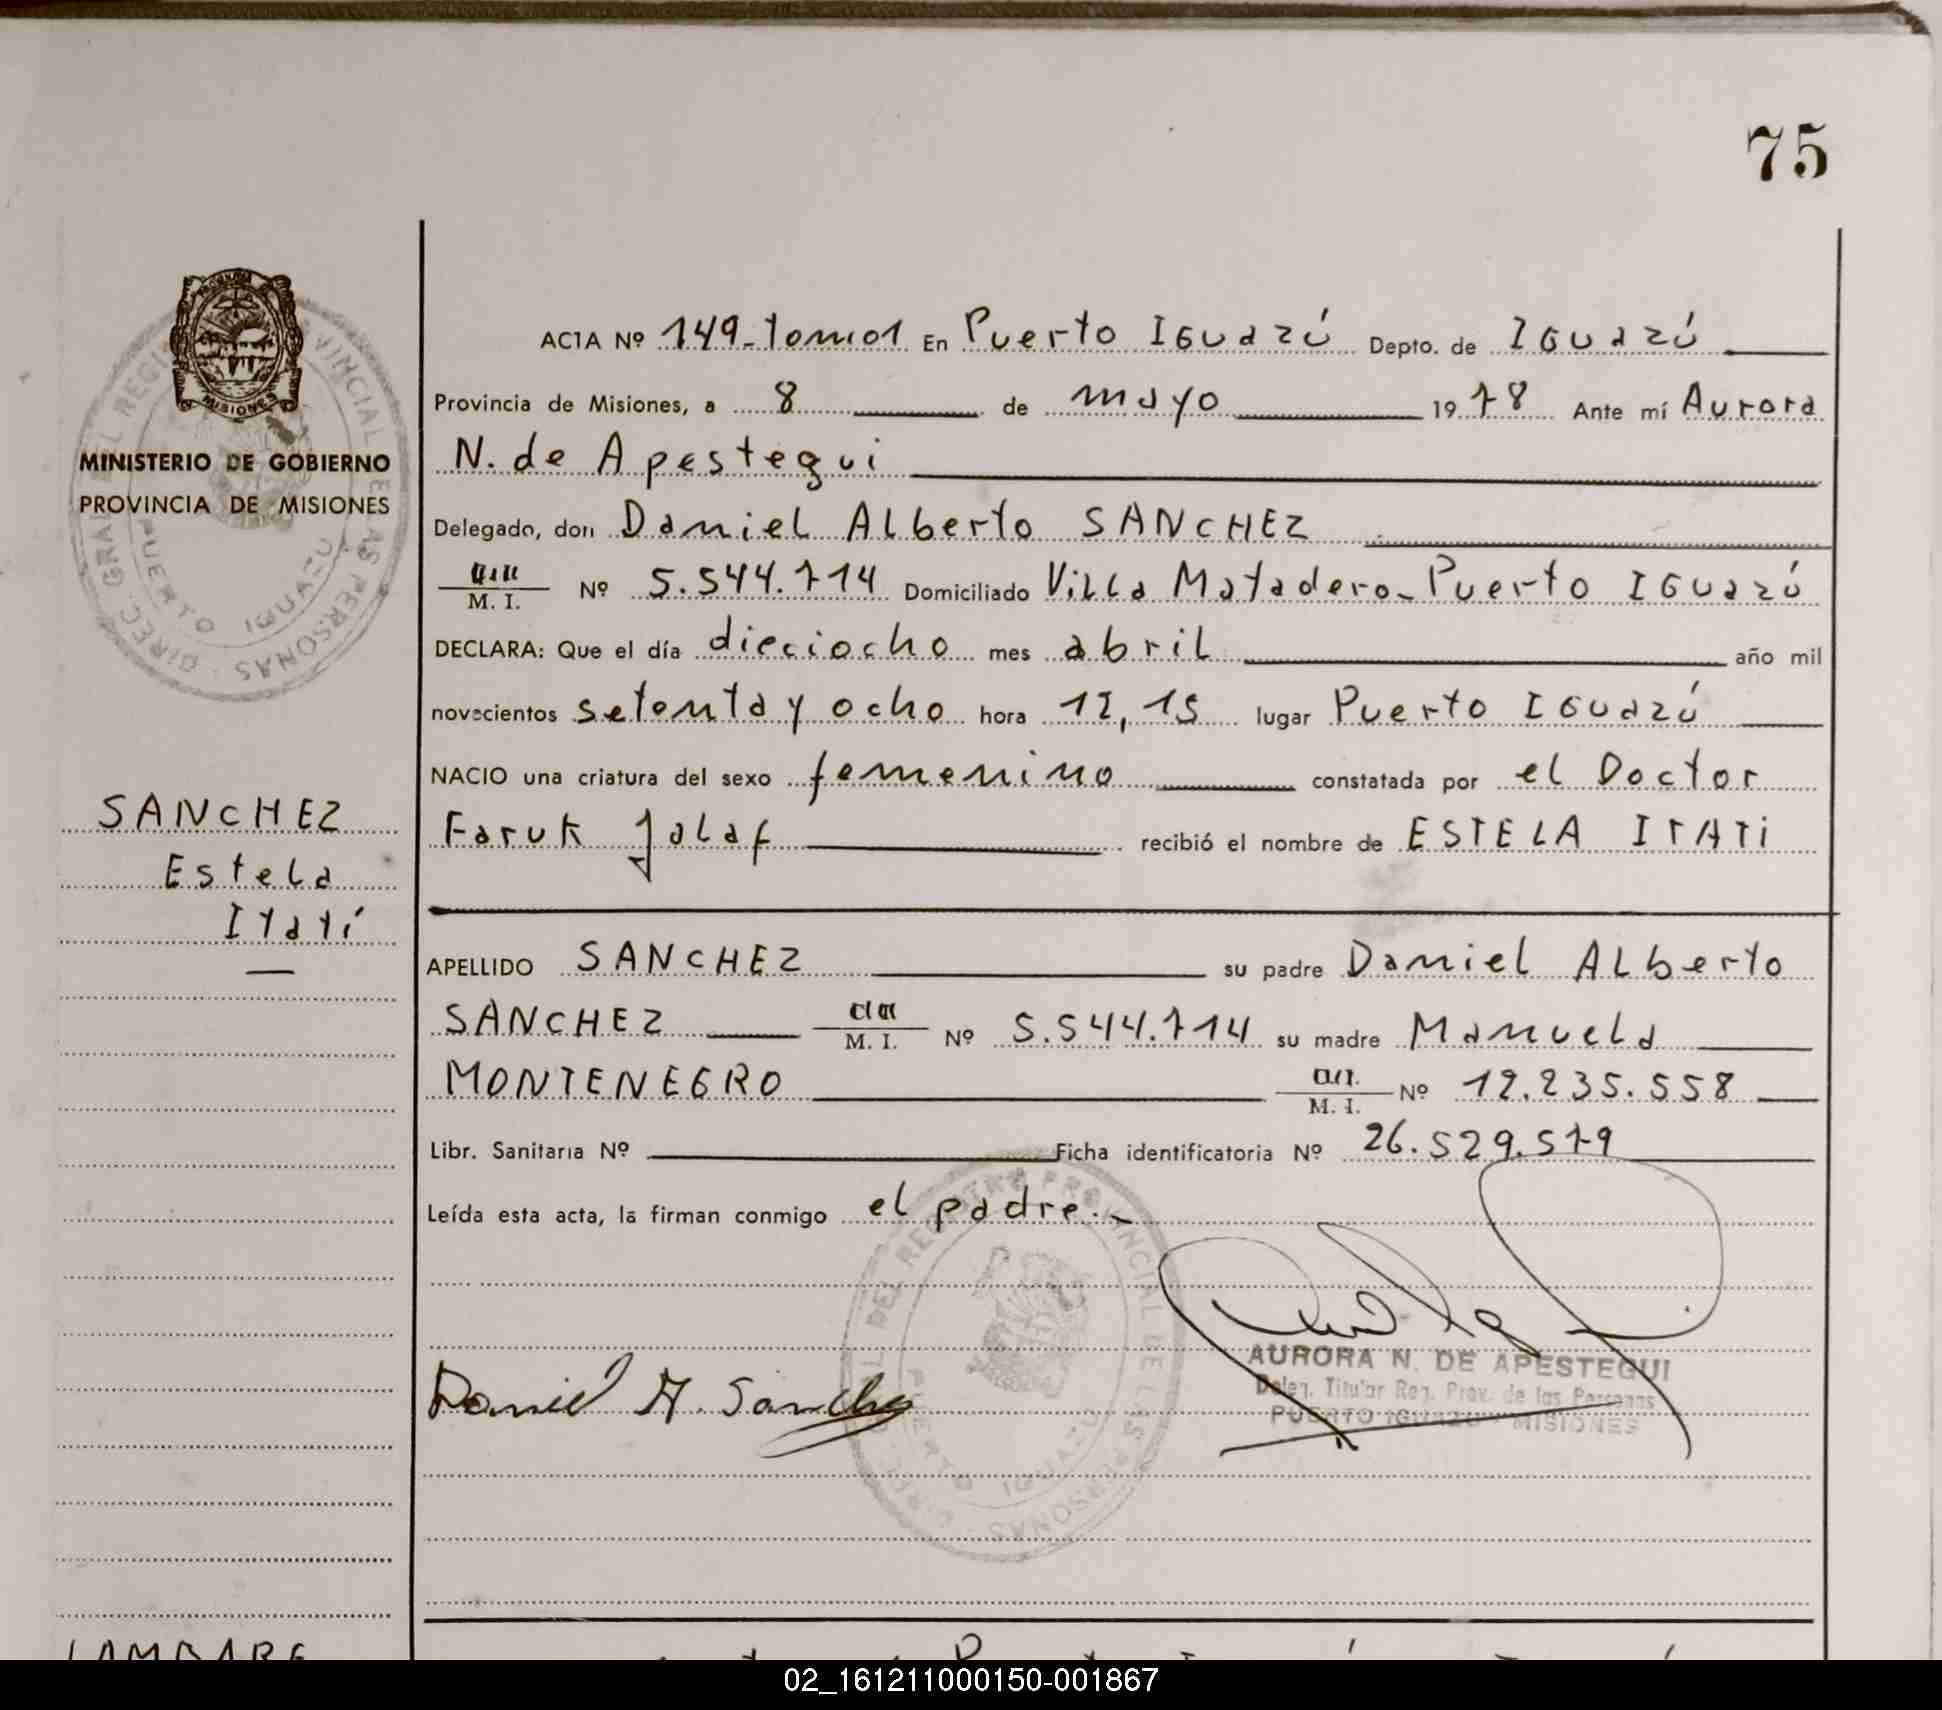 75
ACTA Nº 149-tomo1 En Puerto Iguazú Depto. de Iguazú
Provincia de Misiones, a 8 de mayo 1978 Ante mí Aurora
N. de Apestegui
MINISTERIO DE GOBIERNO
PROVINCIA DE MISIONES
Delegado, don Daniel Alberto SANCHEZ
M. I. Nº 5.544.714 Domiciliado Villa Matadero-Puerto Iguazú
DECLARA: Que el día dieciocho mes abril año mil
novecientos setenta y ocho hora 12,15 lugar Puerto Iguazú
NACIO una criatura del sexo femenino constatada por el Doctor
Faruk Jalaf recibió el nombre de ESTELA ITATI
SANCHEZ
Estela
Itatí
APELLIDO SANCHEZ su padre Daniel Alberto
SANCHEZ M. I. Nº 5.544.714 su madre Manuela
MONTENEGRO M. I. Nº 12.235.558
Libr. Sanitaria Nº Ficha identificatoria Nº 26.529.579
Leída esta acta, la firman conmigo el padre.-
Daniel A. Sanchez
AURORA N. DE APESTEGUI
Deleg. Titular Reg. Prov. de las Personas
PUERTO IGUAZU - MISIONES
DIREC. GRAL. DEL REGISTRO PROVINCIAL DE LAS PERSONAS
PUERTO IGUAZU
LAMBARE
02_161211000150-001867